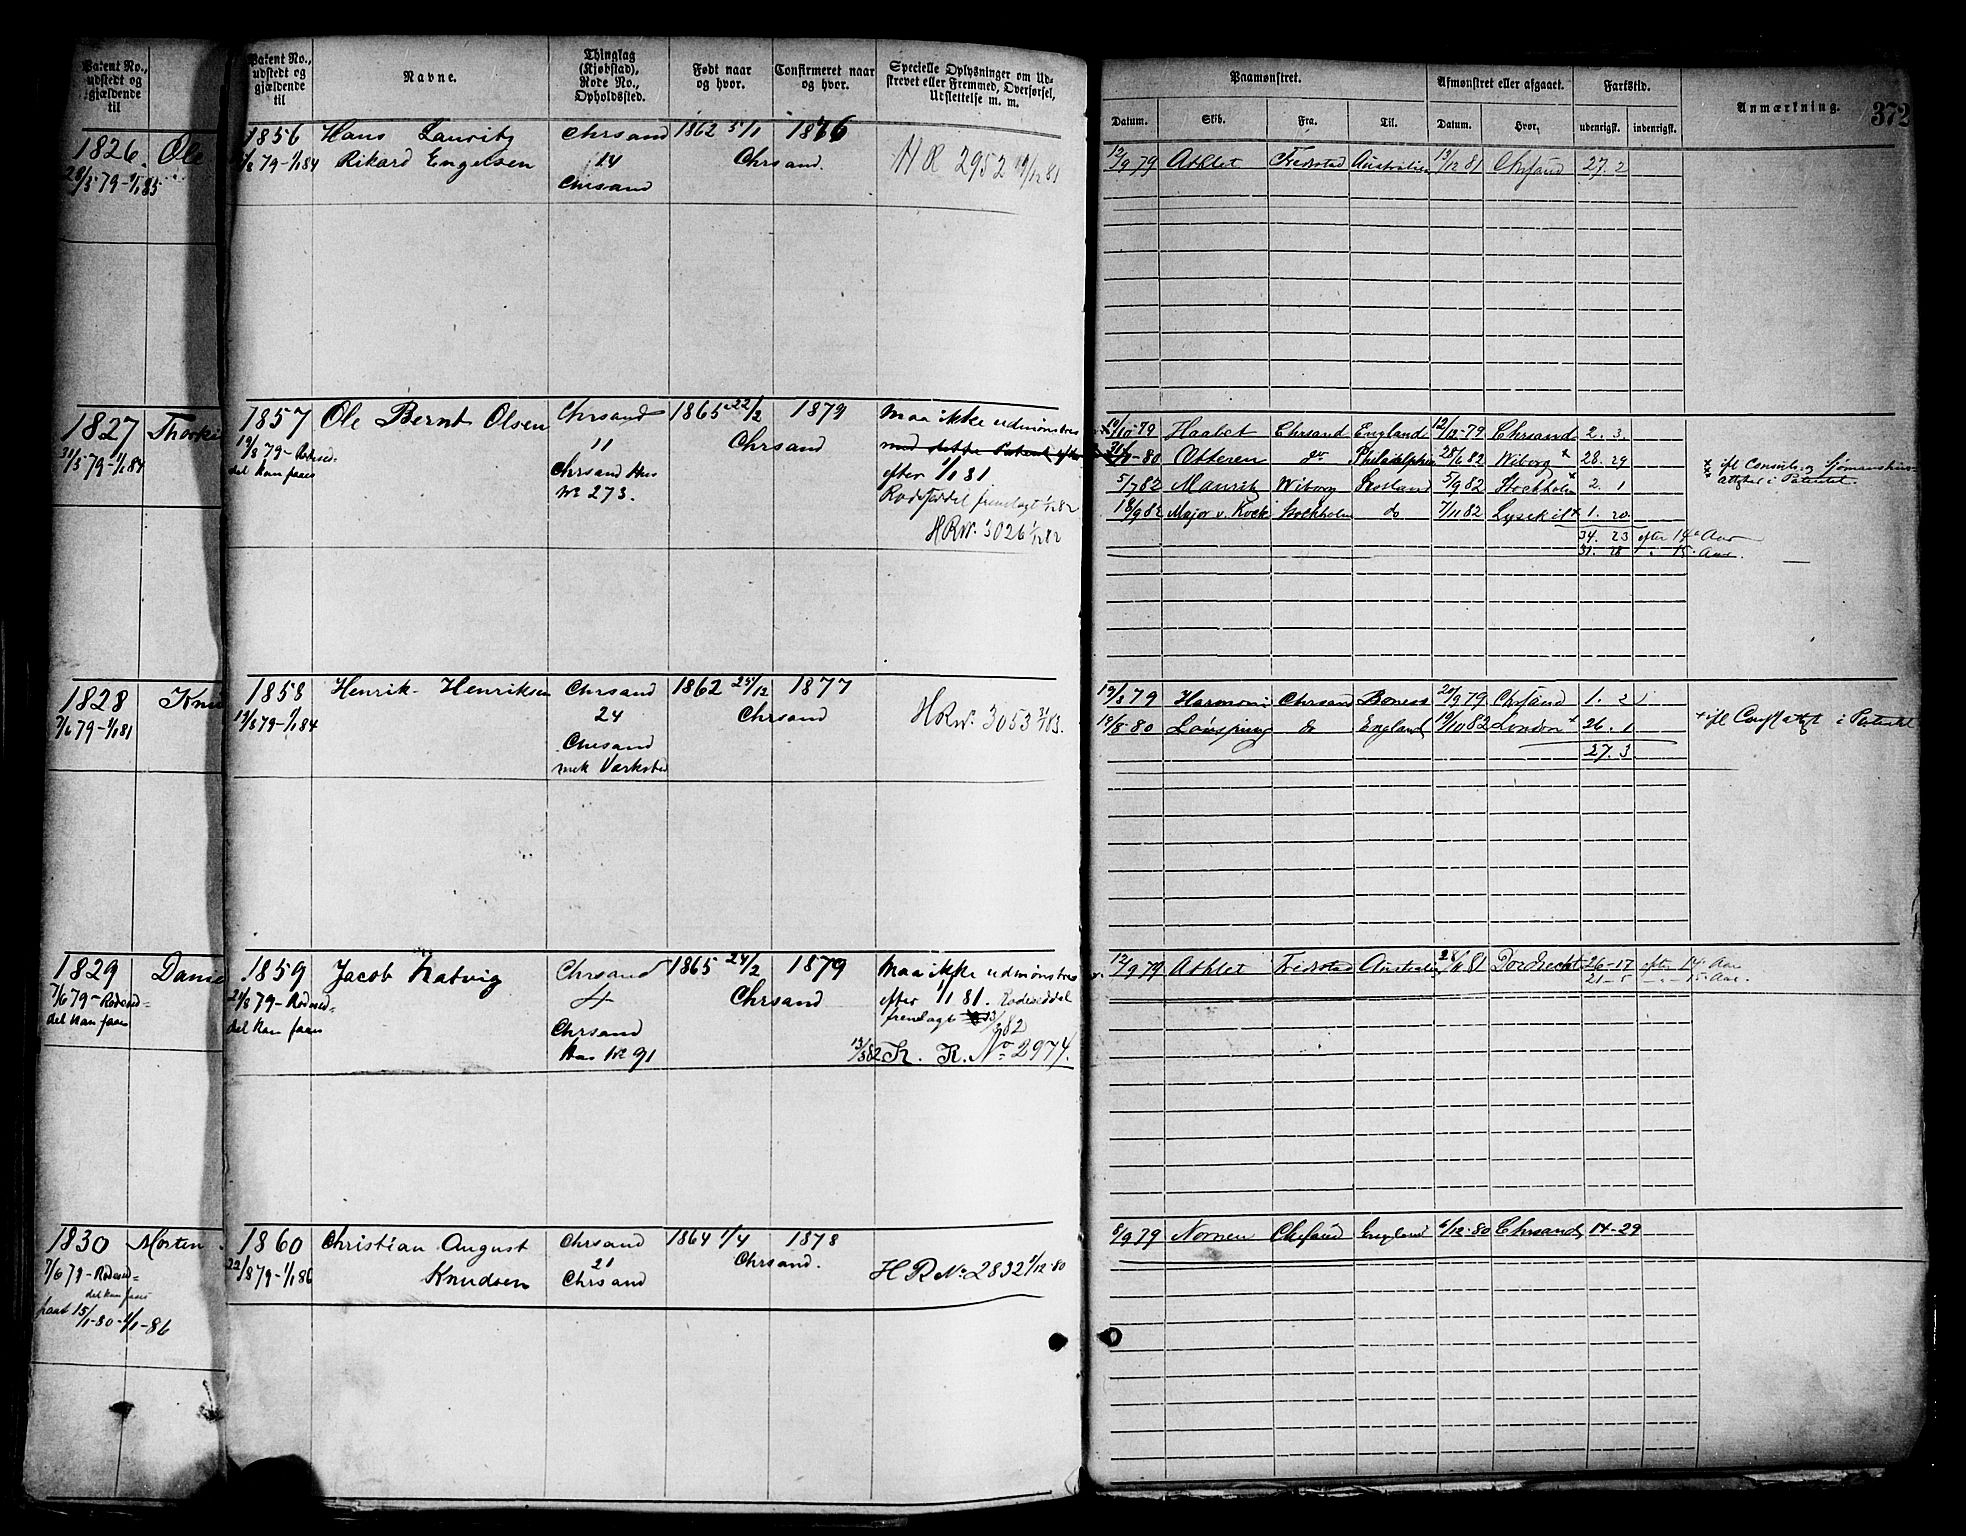 Patent No.,
udstedt og
gjældende
til
1826. Ole
28/5 79-1/1 85
1827 Thorki
31/5 79-1/1 84
1828 Knu
7/6 79-1/1 81
1829 Danie
7/6 79-Rodesed=
del kan faaes
1830 Morten
7/6 79-Rodesed=
del kan faaes
15/1-80-1/1-86
Patent No., Navne. Thinglag Født naar Confirmeret naar Specielle Oplysninger om Ud-
udstedt og (Kjøbstad), og hvor. og hvor. skrevet eller Fremmed, Overførsel,
gjældende Rode No., Udslettelse m. m.
til Opholdssted.
1856 Hans Lauritz Chrsand 1862 5/1 1876
/8 79-1/1 84 Rikard Engelsen 14 Chrsand. HR 2952 19/12 81
Chrsand
1857 Ole Bernt Olsen Chrsand 1865 22/2 1879 Maa ikke udmønstres
19/8 79-Rodesed- 11 Chrsand med dette Patent efter
del kan faaes Chrsand Hus efter 1/1 81.
No 273. Rodeseddel fremlagt 1/12 82
HRNo. 3026 1/12 82
1858 Henrik Henriksen Chrsand 1862 25/12 1877
19/8 79-1/1 84 24 Chrsand HRNo. 3053 2/1 83.
Chrsand
mek Værksted
1859 Jacob Natvig Chrsand 1865 24/2 1879 Maa ikke udmønstres
21/8 79-Rodesed= 4 Chrsand efter 1/1 81. Rodeseddel
del kan faaes Chrsand fremlagt 13/3 82
Hus No 91 13/3 82 H. R. No 2974.
1860 Christian August Chrsand 1864 1/4 1878
22/8 79-1/1 86 Knudsen 21 Chrsand. HR No 2832 6/12-80
Chrsand
372
Paamønstret. Afmønstret eller afgaaet. Fartstid. Anmærkning.
Datum. Skib. Fra. Til. Datum. Hvor. udenrigsk. indenrigsk.
12/9 79 Athlet Fredrstad Australien 19/12 81 Chrsand 27. 2
10/10-79 Haabet Chrsand England 12/12-79 Chrsand 2. 3.
31/1-80 Otteren do Philadelphia 28/6 82 Wiborg x 28. 29
5/7 82 Mauritz Wiborg Skotland 5/9 82 Stockholm x 2. 1
18/9 82 Major v. Kock Stockholm do 7/11 82 Lysekil x 1. 20.
x ifl Consuls og Sjømandshus-
attester i Patentet.
34. 23 efter 14de Aar
31. 28 " " 15. Aar.
19/8 79 Harmoni Chrsand Boness 20/9 79 Chrsand 1. 2
19/8-80 Lousping do England 19/10 82 London x 26. 1
27. 3
x ifl Cons. attest i Patentet
12/9 79 Athlet Fredrstad Australien 28/11 81 Dordrecht 26-17 efter 14 Aar
21-5 - " - 15 Aar.
8/9 79 Nornen Chrsand England 6/12-80 Chrsand 14-29